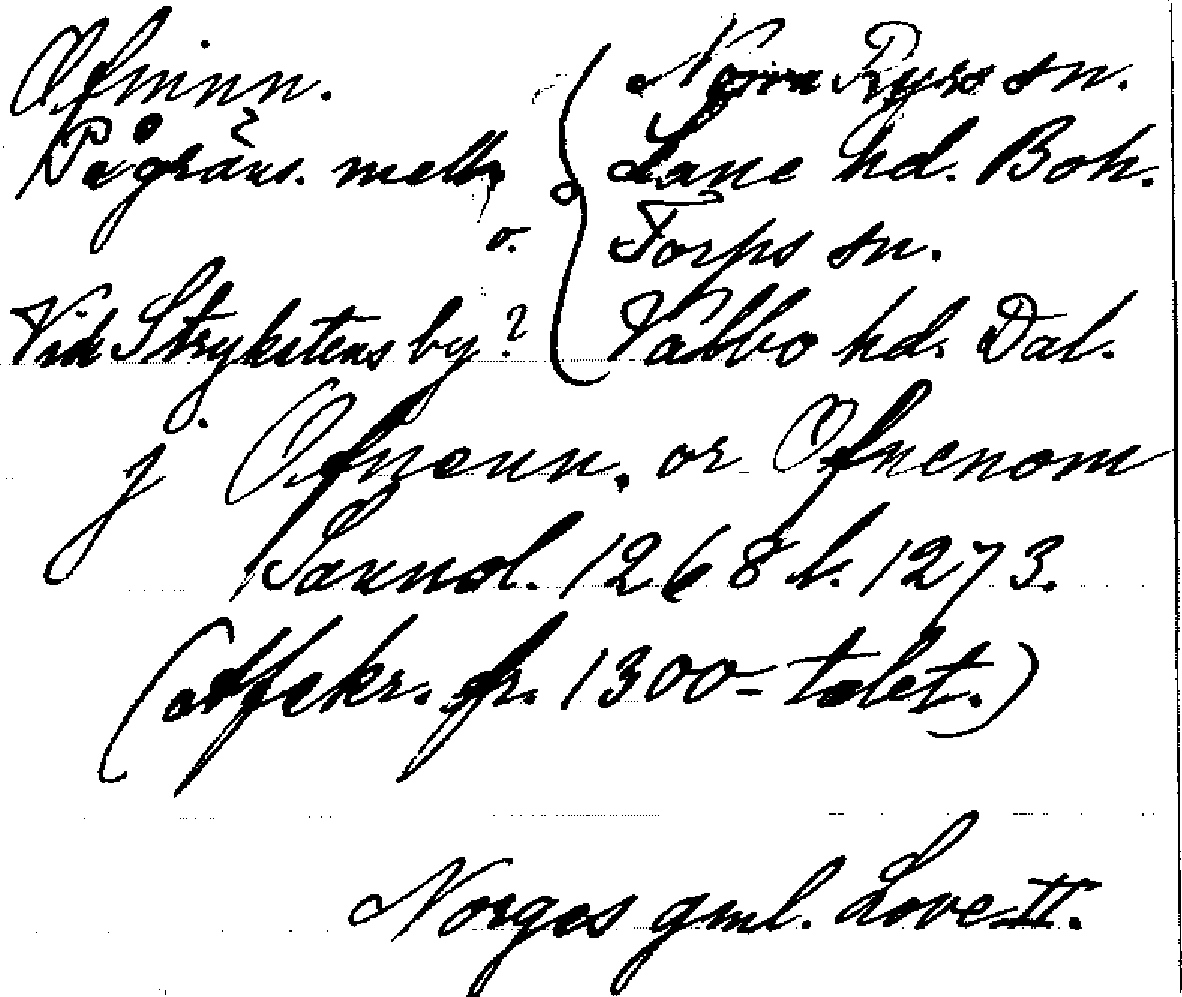 Ofninn.
På gräns. mell.
o.
Vid Strykstens by?
Norra Ryrs sn.
Lane hd. Boh.
Torps sn.
Valbo hd. Dal.
j Ofnenn. or Ofnenom
Saxnol. 1268 l. 1273.
(afskr. fr. 1300-talet.)
Norges gml. Love II.